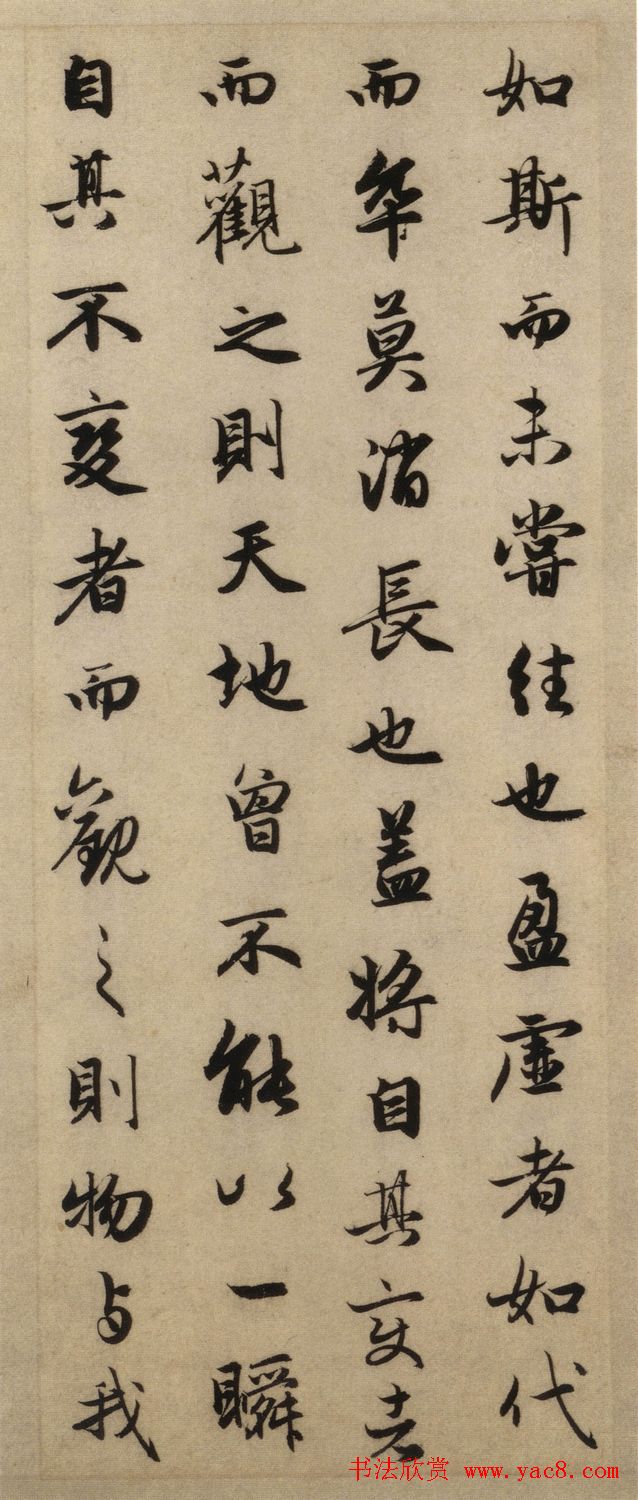 如斯而未嘗往也盈虛者如代
而卒莫消長也蓋將自其变者
而觀之則天地曾不能以一瞬
自其不变者而觀之則物与我
书法欣赏 www.yac8.com